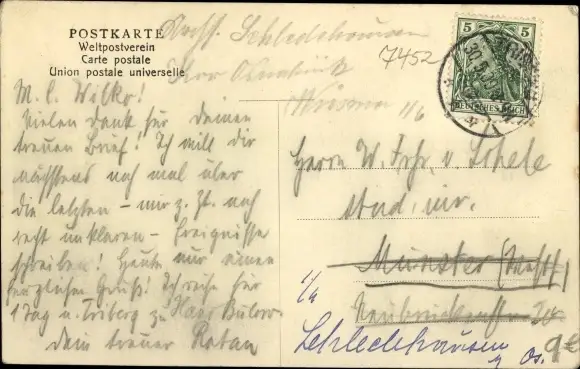 POSTKARTE
Weltpostverein
Carte postale
Union postale universelle
Nachs. Schledehausen
7452
Krs Osnabrück
5 5
DEUTSCHES REICH
M. l. Wilko!
Vielen Dank für Deinen
treuen Brief! Ich will dir
nächstens noch mal über
die letzten – mir z. Zt. noch
recht unklaren – Ereignisse
schreiben! Heute nur einen
herzlichen Gruß! Ich reise für
1 Tag n. Triberg zu Hans Bülow.
Dein treuer
Herrn W. Frhr. v. Schele
stud. iur.
Münster (Westf.)
Schledehausen
b. Os.
9€